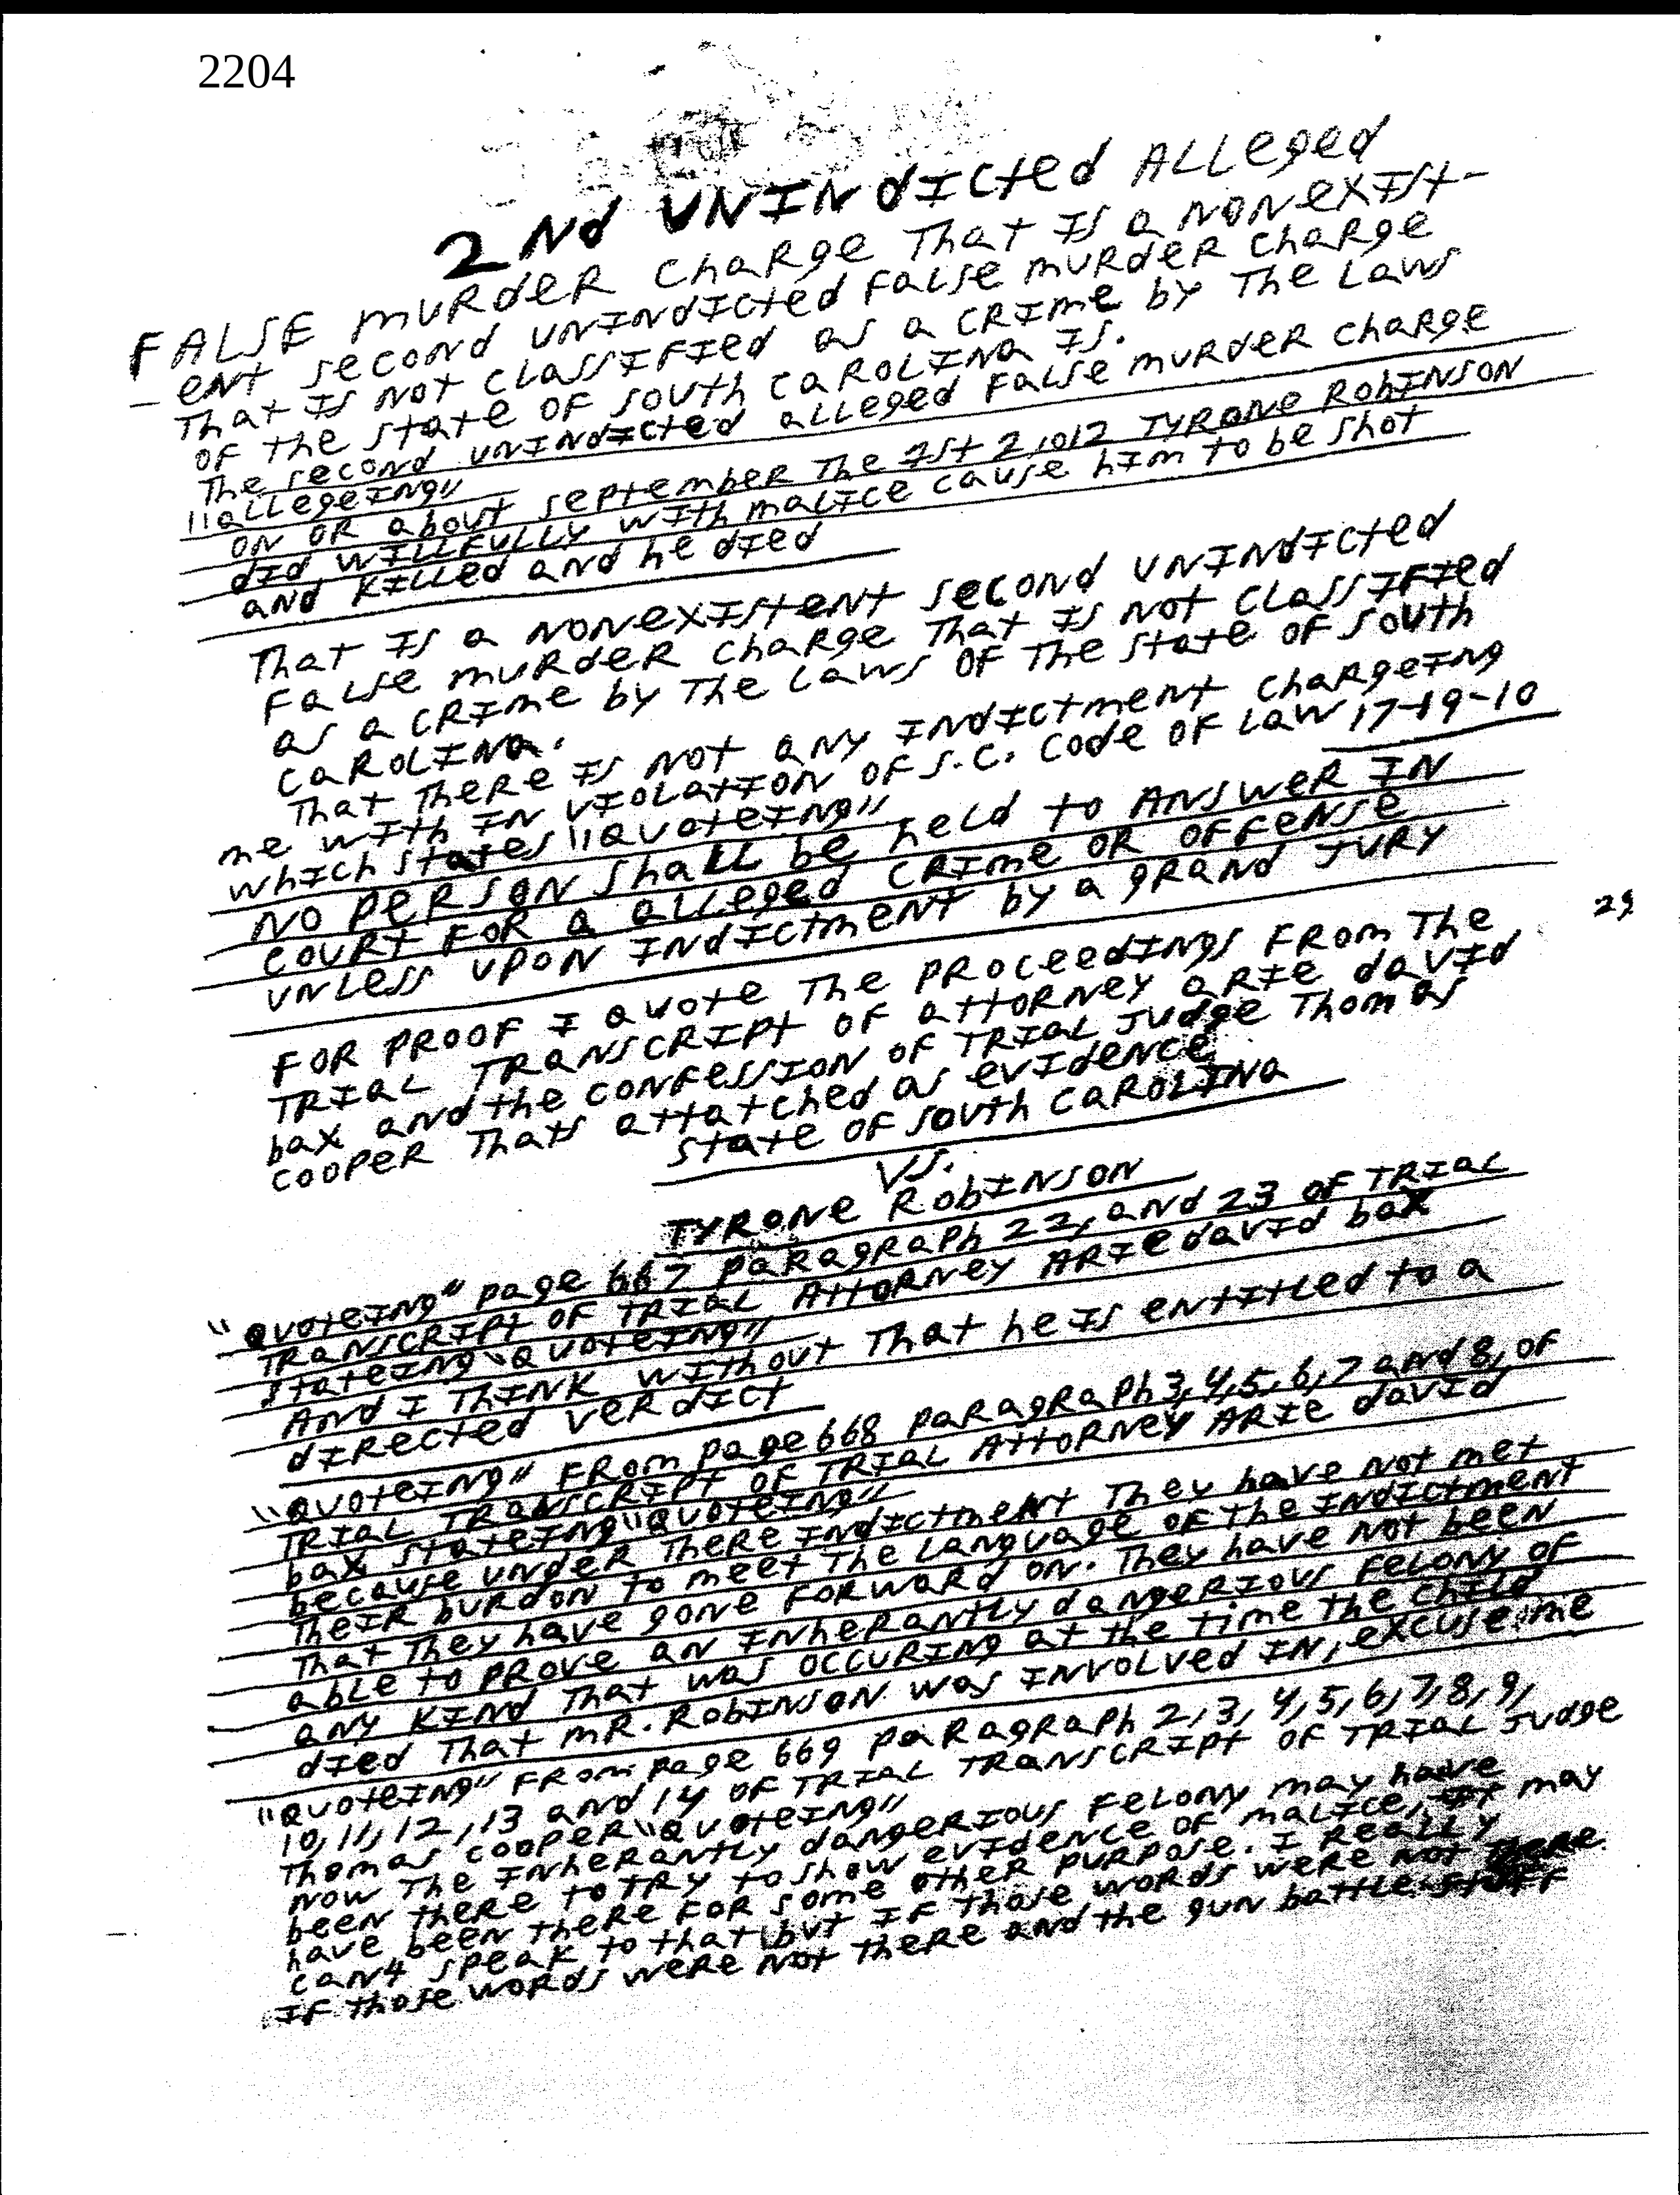 2204
2Nd UNINdICted ALLeged
FALSE mURdeR ChaRge That IS a NONeXISt-
- eNt SecONd UNINdICted FaLSe mURdeR ChaRge
That IS NOt CLaSSIFIed aS a CRIme by The LawS
OF the State OF South CaROLINa IS.
The SecONd UNINdICted aLLeged FaLSe mURdeR ChaRge
"aLLegeINg"
ON OR about September The 1St 2,012 TyRONe RobINSON
dId WILLFULLy WIth maLICe cause hIm to be Shot
aNd KILLed aNd he dIed
That IS a NONeXISteNt SecONd UNINdICted
FaLSe mURdeR ChaRge That IS NOt CLaSSIFIed
aS a CRIme by The LawS OF The State OF South
CaROLINa.
That TheRe IS NOt aNy INdICtmeNt ChaRgeINg
me WIth IN VIOLatION OF S.C. Code OF Law 17-19-10
WhICh StateS "QuoteINg"
NO PeRSON ShaLL be heLd to ANSweR IN
COURT FOR a aLLeged CRIme OR OFFeNSe
UNLeSS UPON INdICtmeNt by a gRaNd JURY
29
FOR PROOF I Quote The PROCeedINgS FROm The
TRIaL TRaNSCRIPt OF attORNey aRIe davId
bax aNd the CONFeSSION OF TRIaL Judge ThomaS
COOPeR ThatS attatched aS evIdeNCe
State OF South CaROLINa
VS.
TYRONe RobINSON
"QuoteINg" Page 667 PaRagRaPh 22, aNd 23 OF TRIaL
TRaNSCRIPt OF TRIaL AttORNey ARIe davId bax
StateINg "QuoteINg"
ANd I ThINK WIthout That he IS eNtItLed to a
dIRected VeRdICt
"QuoteINg" FROm Page 668 PaRagRaPh 3,4,5,6,7 aNd 8, OF
TRIaL TRaNSCRIPt OF TRIaL AttORNey ARIe davId
bax StateINg "QuoteINg"
because UNdeR TheRe INdICtmeNt They have NOt met
TheIR buRdoN to meet The LaNguage OF the INdICtmeNt
That They have goNe FORwaRd ON. They have NOt beeN
abLe to PROve aN INheRaNtLy daNgeRIouS FeLONy OF
aNy KINd That waS OccuRINg at the tIme the ChILd
dIed That mR. RobINSON waS INvoLved IN, excuse me
"QuoteINg" FROm Page 669 PaRagRaPh 2,3,4,5,6,7,8,9,
10,11,12,13 aNd 14 OF TRIaL TRaNSCRIPt OF TRIaL Judge
ThomaS COOPeR "QuoteINg"
NOw The INheRaNtLy daNgeRIouS FeLONy may have
beeN theRe to tRy to Show evIdeNCe OF maLICe, It may
have beeN theRe FOR Some otheR PuRPose. I ReaLLy
caNt SPeaK to that but IF those woRdS weRe NOt theRe
IF those woRdS weRe NOt theRe aNd the guN battLe StuFF